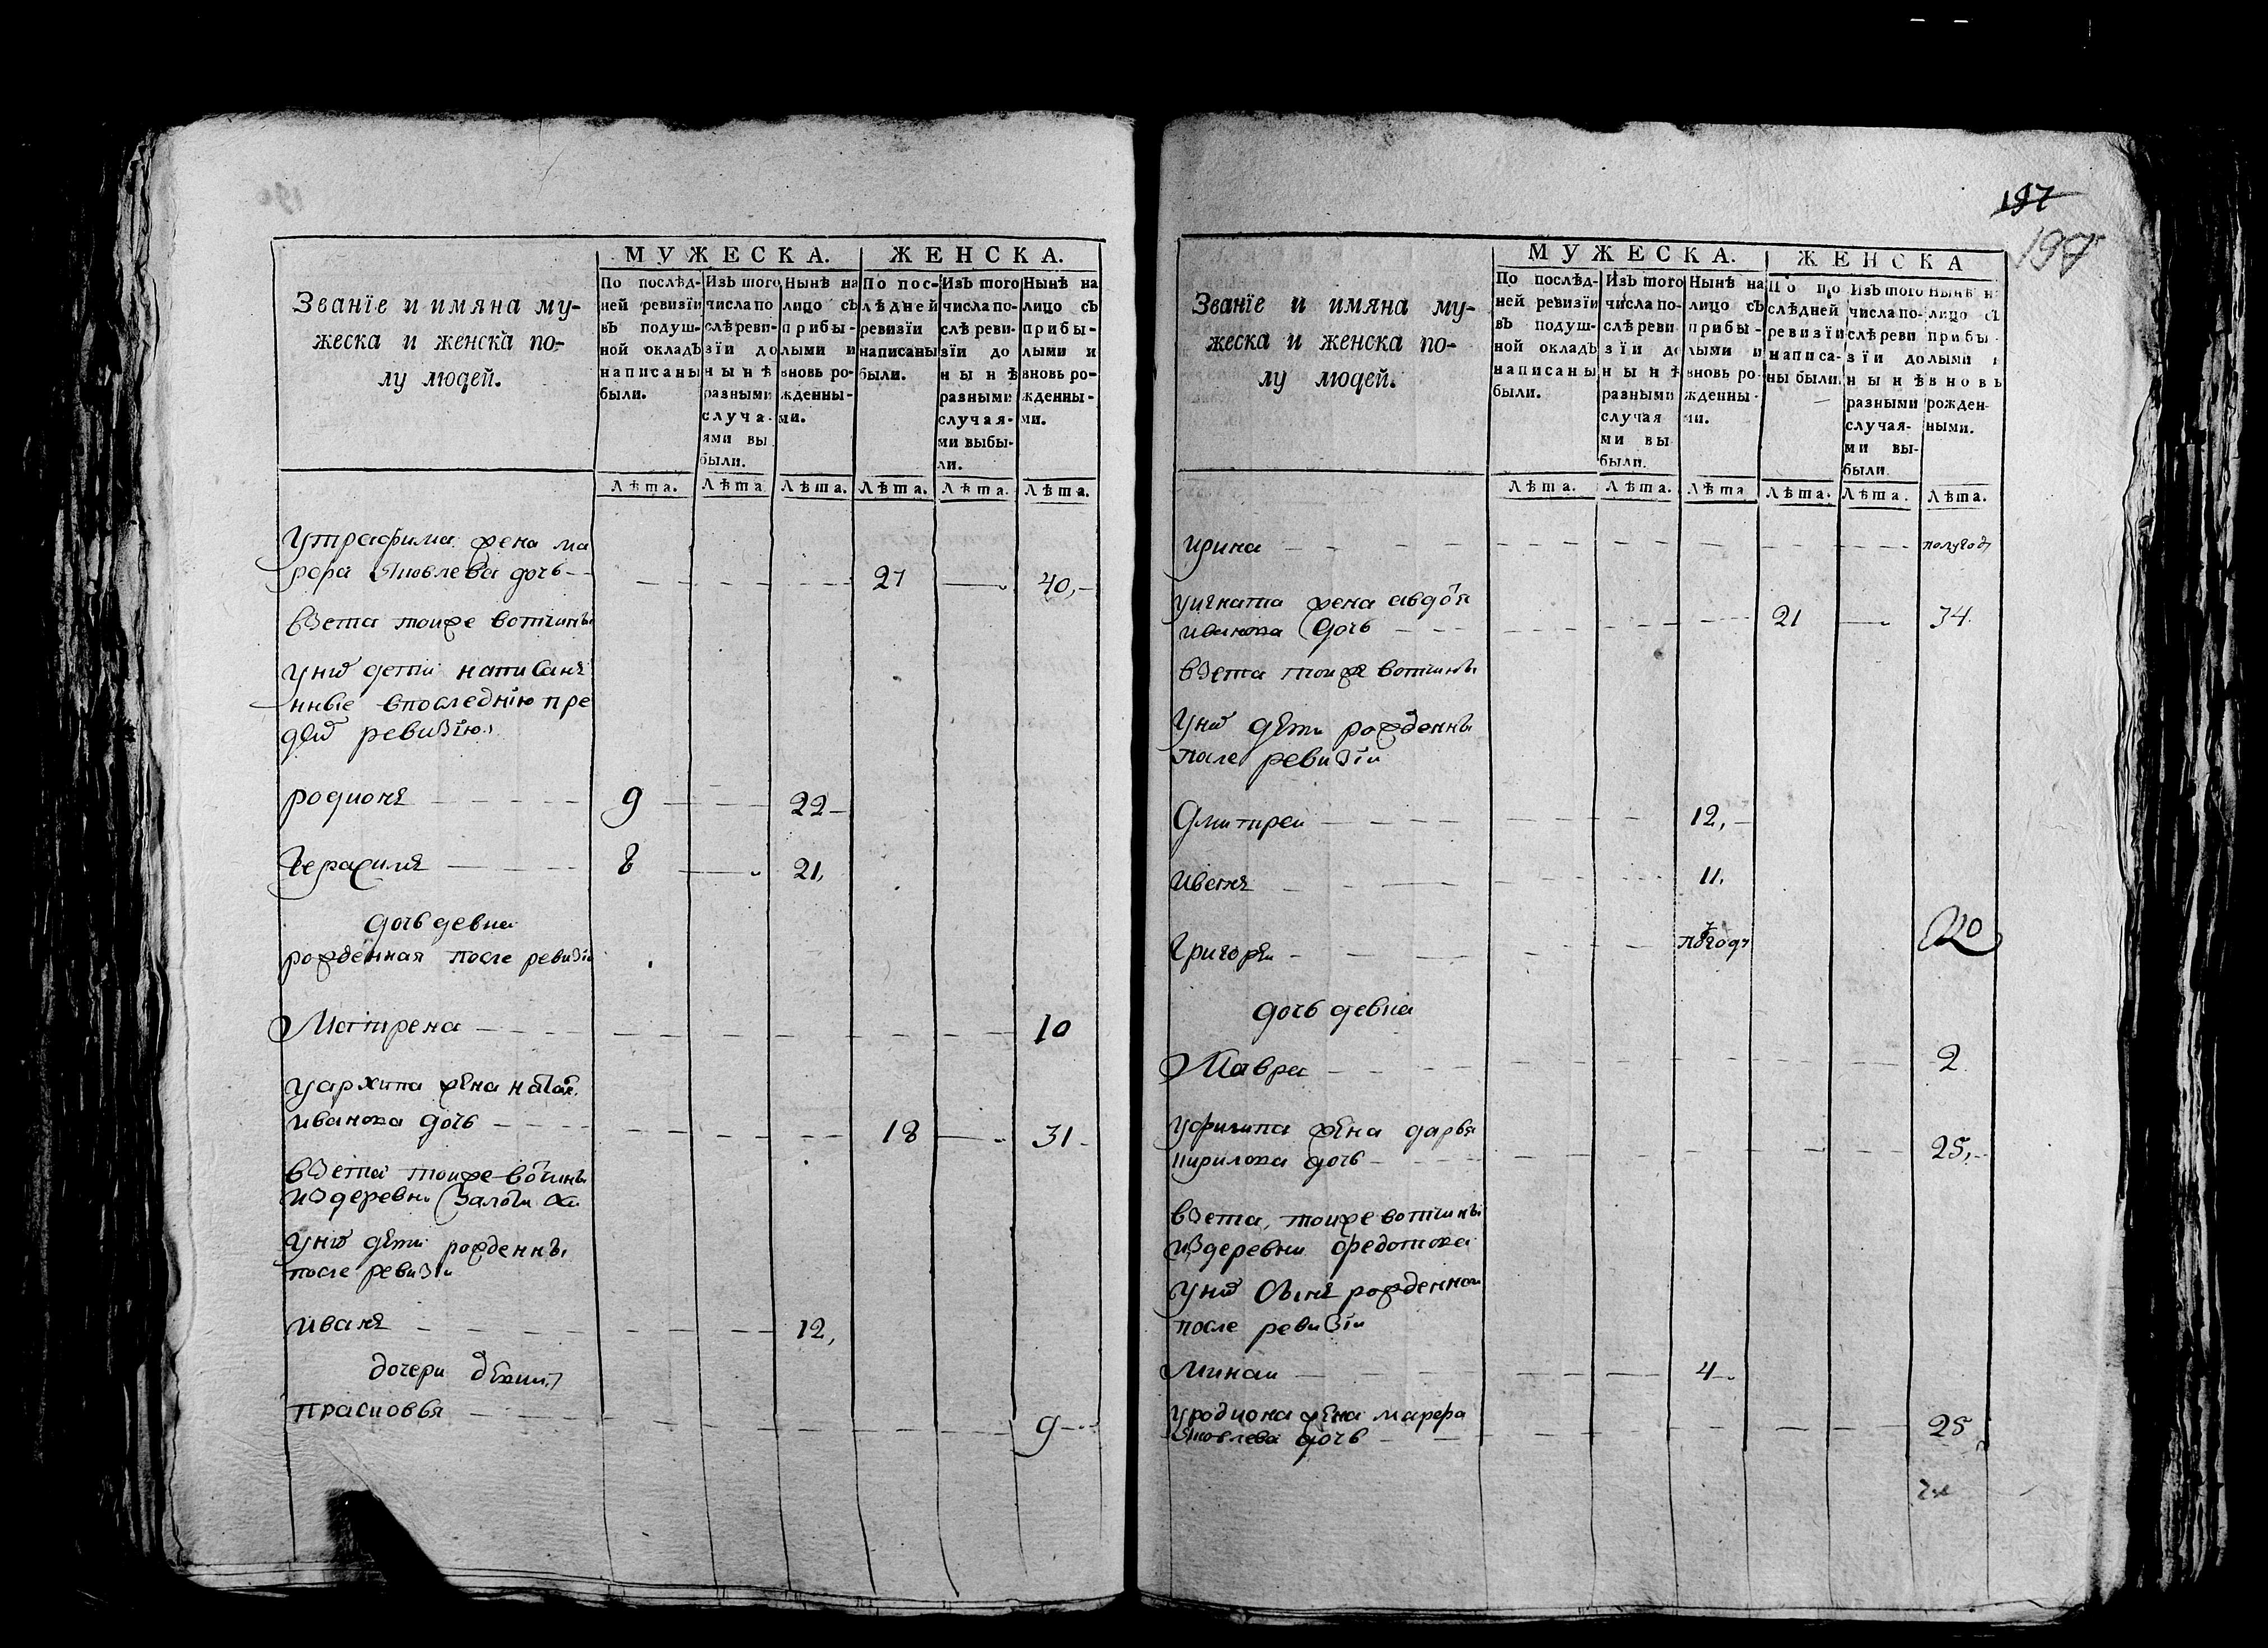 МУЖЕСКА. ЖЕНСКА.
Званїе и имяна му-
жеска и женска по-
лу людей.
По послѣд-
ней ревизїи
въ подуш-
ной окладъ
написаны
были.
Изъ того
числа по
слѣ реви-
зїи до
нынѣ
разными
случа-
ями вы
были.
Нынѣ на
лицо съ
прибы-
лыми и
вновь ро-
жденны-
ми.
По пос-
лѣдней
ревизїи
написаны
были.
Изъ того
числа по-
слѣ реви-
зїи до
нынѣ
разными
случая-
ми выбы-
ли.
Нынѣ на
лицо съ
прибы-
лыми и
вновь ро-
жденны-
ми.
Лѣта. Лѣта Лѣта. Лѣта. Лѣта. Лѣта.
утрафима жена ма
рфа яковлева дочь 27 40,
взета тоиже вотчины
унѡ дети написанъ
нные впоследнїю пре
дѣлѡ ревизїю
родионъ 9 22
герасимъ 8 21,
дочь девка
рожденная после ревизїи
Матрена 10
уархипа жена
иванова дочь 18 31
взета тоиже вотчины
издеревни
унѡ дети рожденны
после ревизїи
иванъ 12,
дочери
прасковья 9
197
198
МУЖЕСКА. ЖЕНСКА
Званїе и имяна му-
жеска и женска по-
лу людей.
По послѣд-
ней ревизїи
въ подуш-
ной окладъ
написаны
были.
Изъ того
числа по-
слѣ реви
зїи до
нынѣ
разными
случая
ми вы
были.
Нынѣ на
лицо съ
прибы-
лыми и
вновь ро-
жденны-
ми.
По по
слѣдней
ревизїи
написа-
ны были.
Изъ того
числа по-
слѣ реви
зїи до
нынѣ
разными
случая-
ми вы-
были.
Нынѣ н
лицо съ
прибы-
лыми и
вновь
рожден-
ными.
Лѣта. Лѣта. Лѣта Лѣта. Лѣта. Лѣта.
ирина полугодъ
уигната жена авдотя
иванова дочь 21 34.
взета тоиже вотчины
унѡ дети рожденны
после ревизїи
дмитреи 12,
ивенъ 11,
григореи
дочь девка
Мавра 2
уфилипа жена дарья
кирилова дочь 25,
взета, тоиже вотчины
издеревни федотова
унѡ сынъ рожденнои
после ревизїи
минаи 4
уродиона жена марфа
яковлева дочь 25